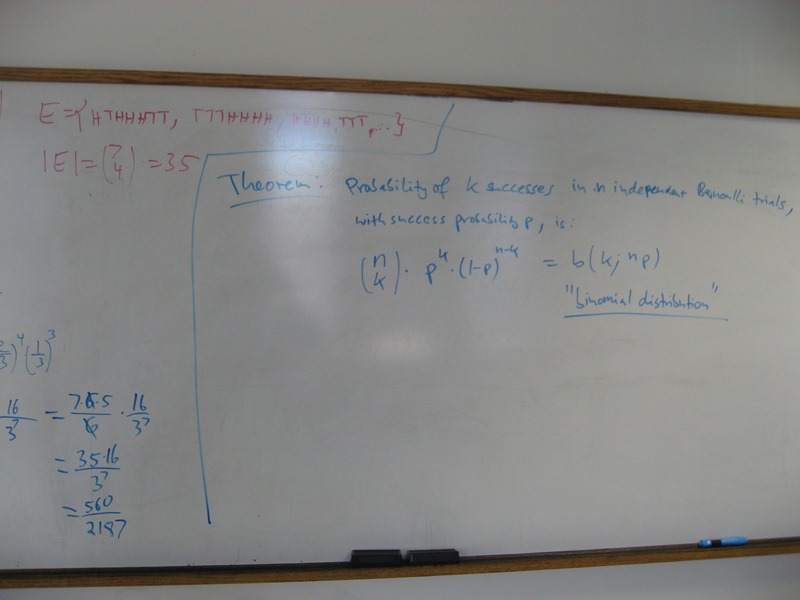 E={HTHHHTT, TTTHHHH, HHHH,TTT,...}
|E|=(7 4)=35
Theorem: Probability of k successes in n independent Bernoulli trials,
with success probability p, is:
(n k)· p^k·(1-p)^n-k = b(k; n p)
"binomial distribution"
2/3)^4(1/3)^3
16/3^7 = 7·6·5/6 · 16/3^7
= 35·16/3^7
= 560/2187